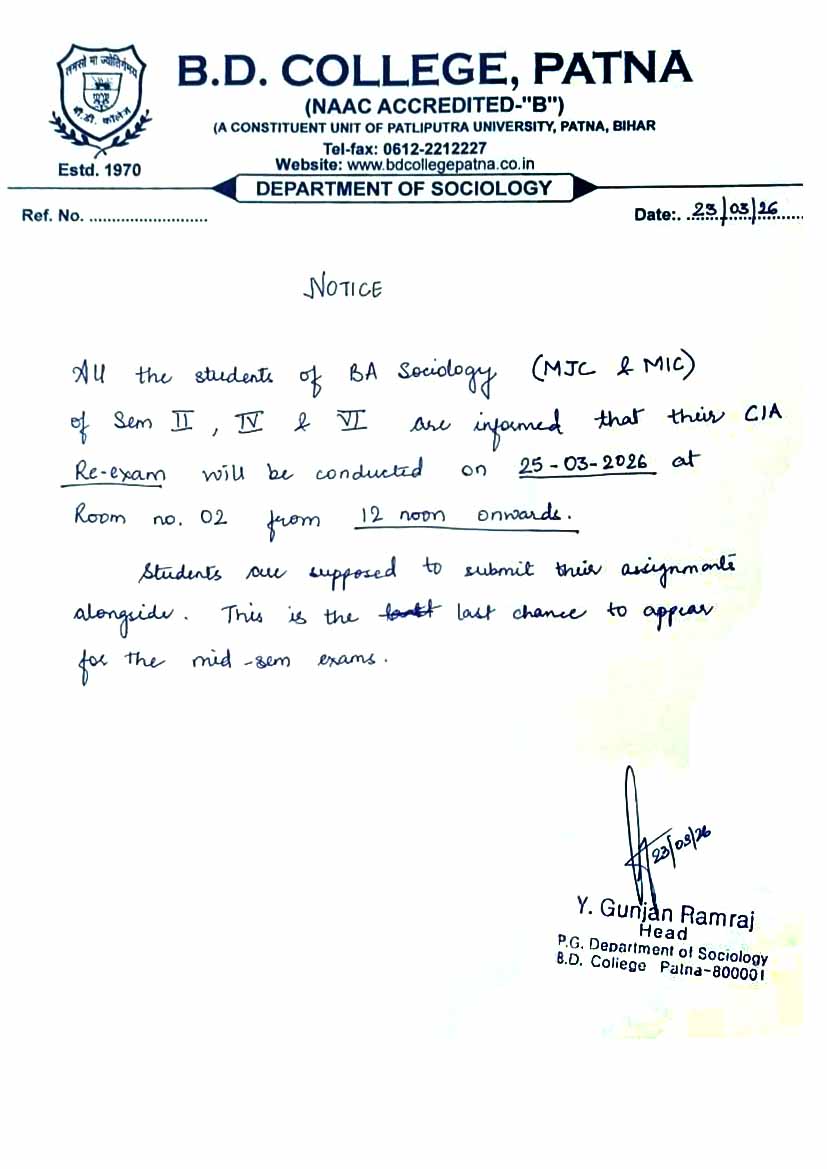 तमसो मा ज्योतिर्गमय
बी.डी. कॉलेज
Estd. 1970
B.D. COLLEGE, PATNA
(NAAC ACCREDITED-"B")
(A CONSTITUENT UNIT OF PATLIPUTRA UNIVERSITY, PATNA, BIHAR
Tel-fax: 0612-2212227
Website: www.bdcollegepatna.co.in
DEPARTMENT OF SOCIOLOGY
Ref. No. ..........................
Date:. 23/03/26
NOTICE
All the students of BA Sociology (MJC & MIC)
of Sem II, IV & VI are informed that their CIA
Re-exam will be conducted on 25-03-2026 at
Room no. 02 from 12 noon onwards.
Students are supposed to submit their assignments
alongside. This is the last chance to appear
for the mid-sem exams.
23/03/26
Y. Gunjan Ramraj
Head
P.G. Department of Sociology
B.D. College Patna-800001